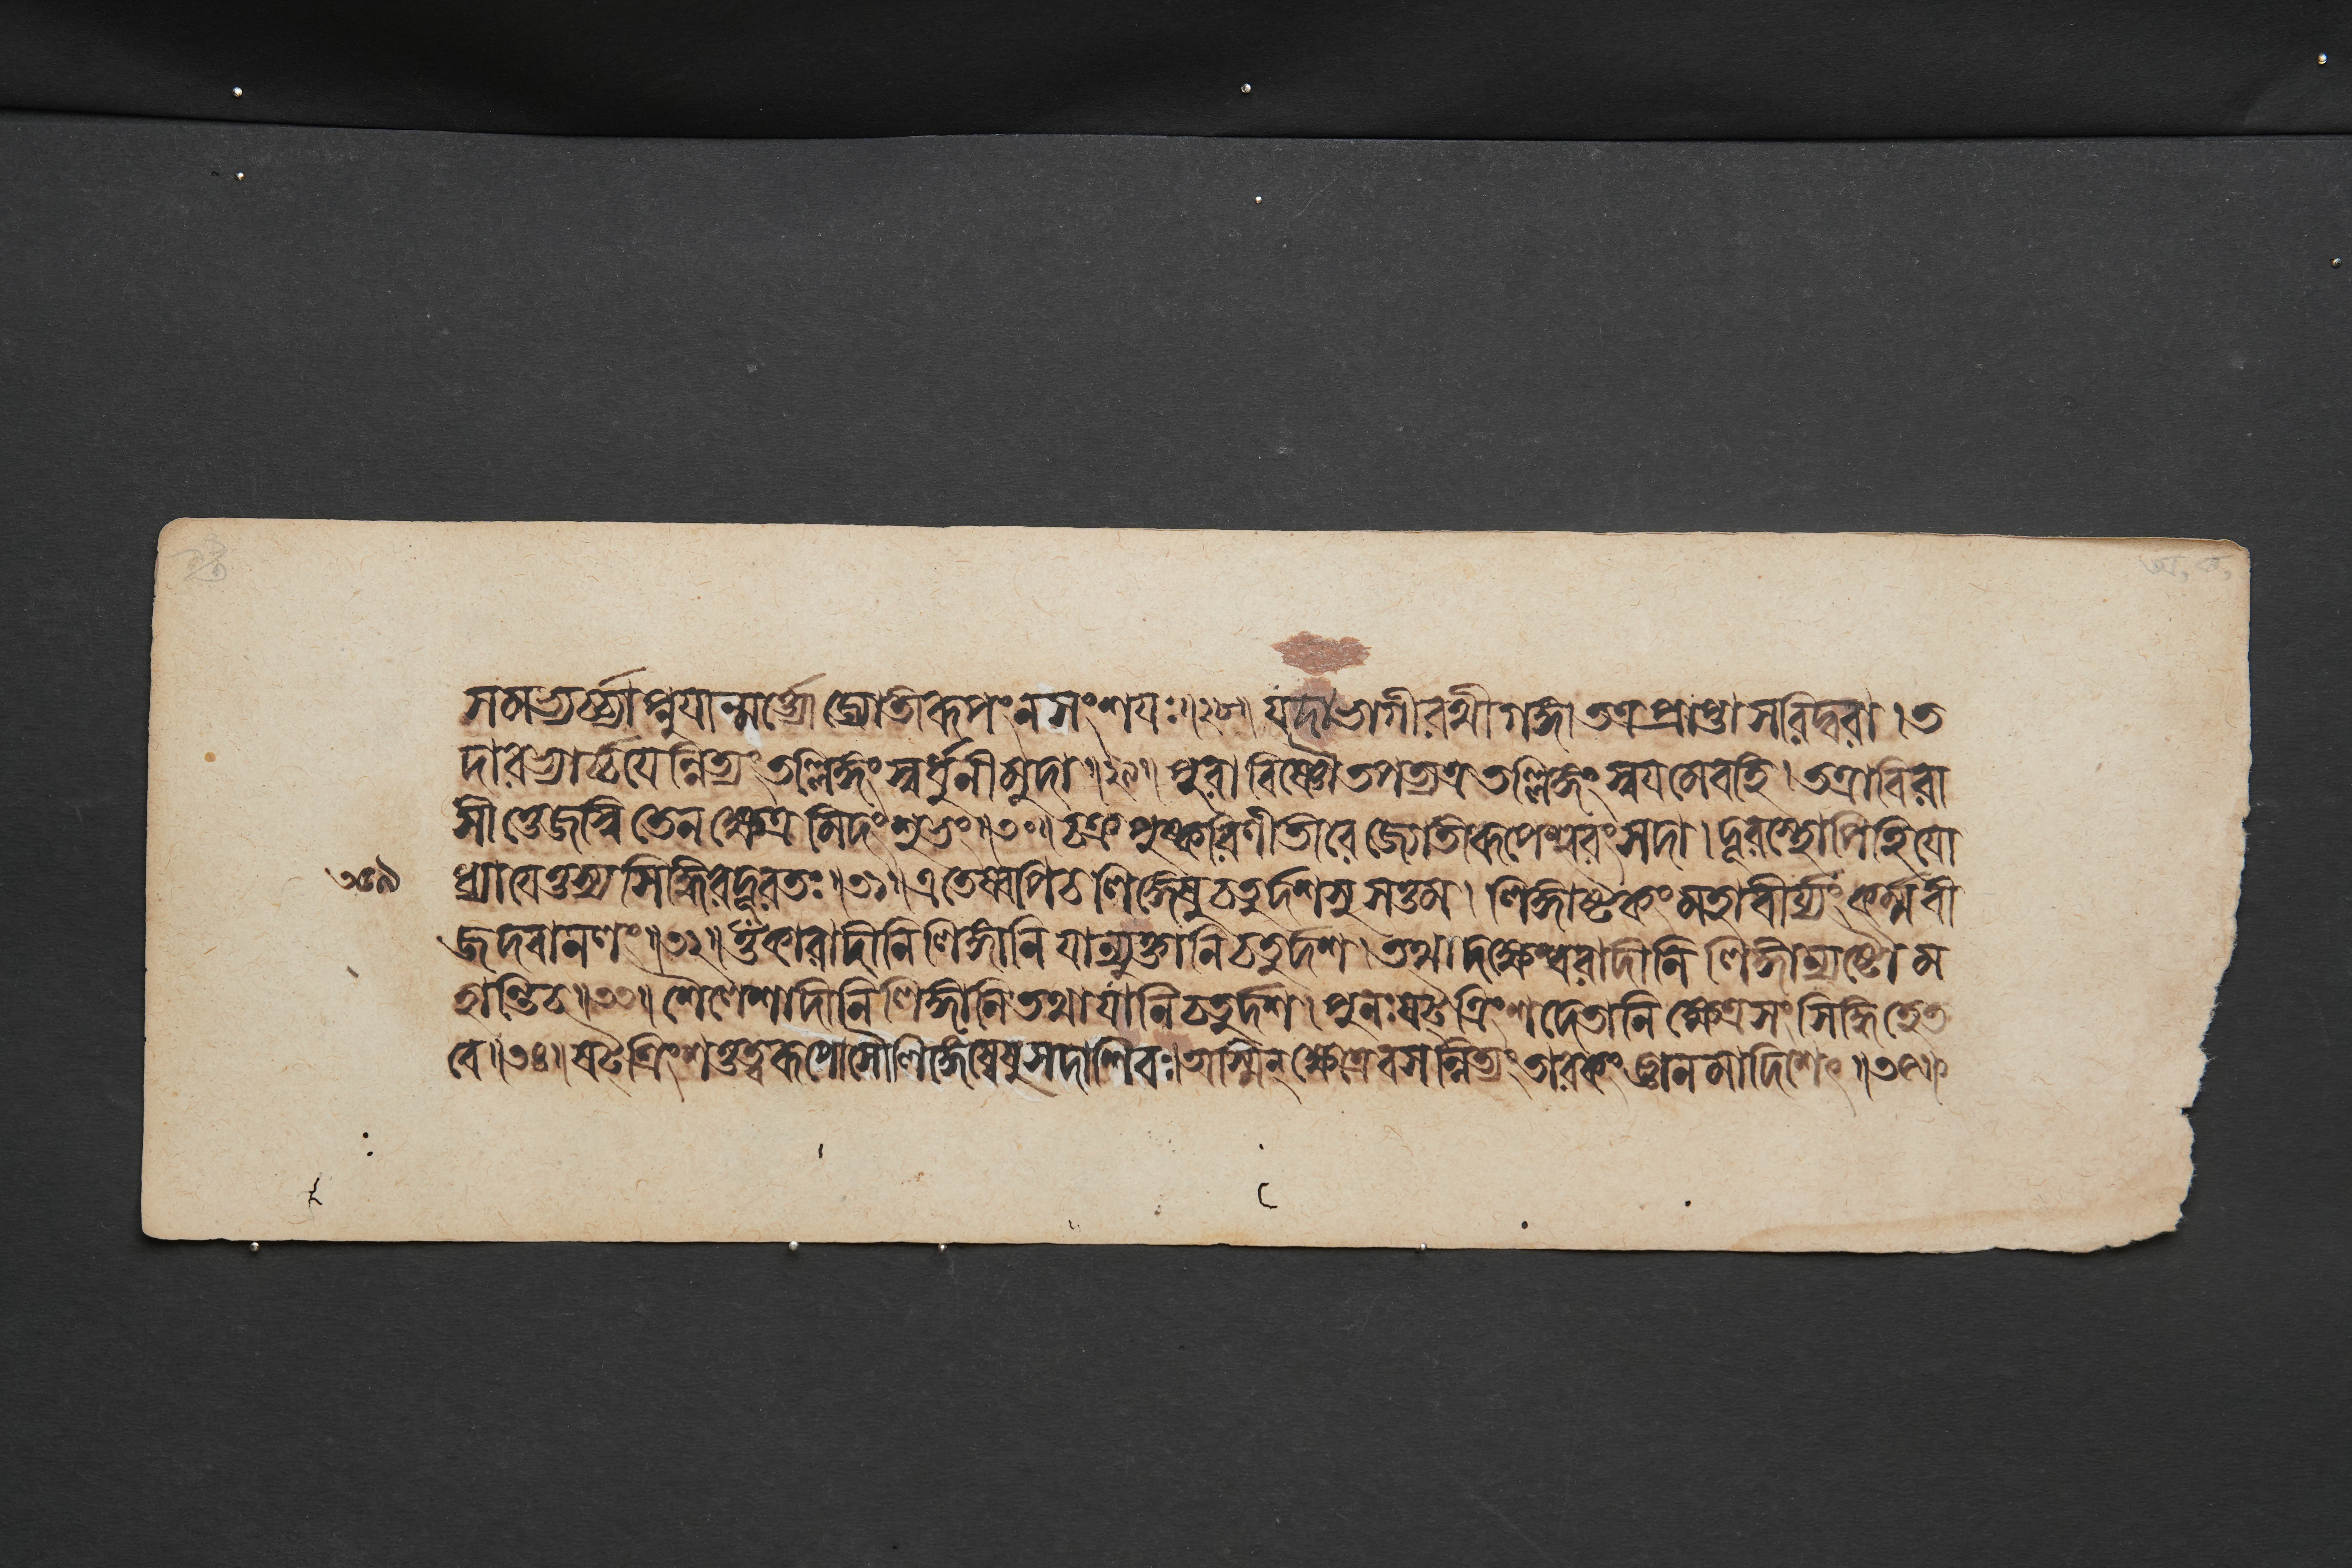 সমভ্যর্চ্চ্যাপ্নুযান্মর্ত্ত্যো জ্যোতীরূপং ন সংশযঃ ॥২৮॥ যদা ভাগীরথী গঙ্গা তত্র প্রাপ্তা সরিদ্বরা । ত
দারভ্যার্চ্চযেন্নিত্যং তল্লিঙ্গং স্বর্ধুনী মুদা ॥২৯॥ পুরা বিষ্ণৌ তপত্যত্র তল্লিঙ্গং স্বযমেবহি । তত্রাবিরা
সীত্তেজস্বি তেন ক্ষেত্রমিদং শুভং ॥৩০॥ চক্রপুষ্করিণীতীরে জ্যোতীরূপেশ্বরং সদা । দূরস্থোপিহি যো
ধ্যাযেত্তস্য সিদ্ধিরদূরতঃ ॥৩১॥ এতেষ্বপিচ লিঙ্গেষু চতুর্দশসু সত্তম । লিঙ্গাষ্টকং মহাবীর্য্যং কর্ম্মবী
জদবানলং ॥৩২॥ ওঁকারাদীনি লিঙ্গানি যান্যুক্তানি চতুর্দশ । তথা দক্ষেশ্বরাদীনি লিঙ্গান্যষ্টৌ ম
হান্তিচ ॥৩৩॥ শৈলেশাদীনি লিঙ্গানি তথা যানি চতুর্দশ । পুনঃ ষট্ত্রিংশদেতানি ক্ষেত্রসংসিদ্ধিহেত
বে ॥৩৪॥ ষট্ত্রিংশত্তত্ত্বরূপোসৌ লিঙ্গেষ্বেষু সদাশিবঃ। অস্মিন্ ক্ষেত্রে বসন্নিত্যং তারকং জ্ঞানমাদিশেৎ ॥৩৫॥